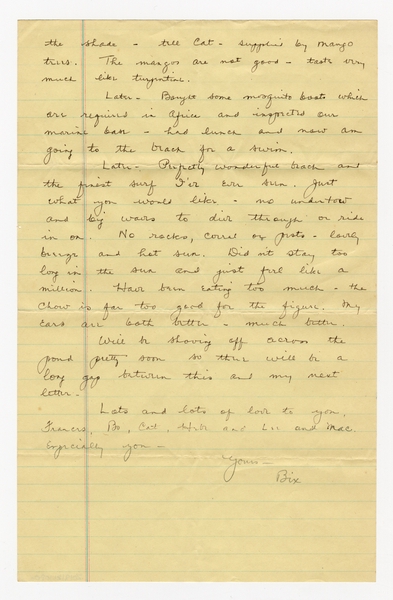 the shade - tell Cat - supplied by mango
trees. The mangos are not good - taste very
much like turpentine.
Later - Bought some mosquito boots which
are required in Africa and inspected our
marine base - had lunch and now am
going to the beach for a swim.
Later - Perfectly wonderful beach and
the finest surf I've ever seen. Just
what you would like - no undertow
and big waves to dive through or ride
in on. No rocks, correl or pots - lovely
breeze and hot sun. Did n't stay too
long in the sun and just feel like a
million. Have been eating too much - the
chow is far too good for the figure. My
ears are both better - much better.
Will be shoving off across the
pond pretty soon so there will be a
long gap between this and my next
letter.
Lots and lots of love to you,
Frances, Bo, Cat, and Lee and Mac
Especially you -
Yours -
Bix